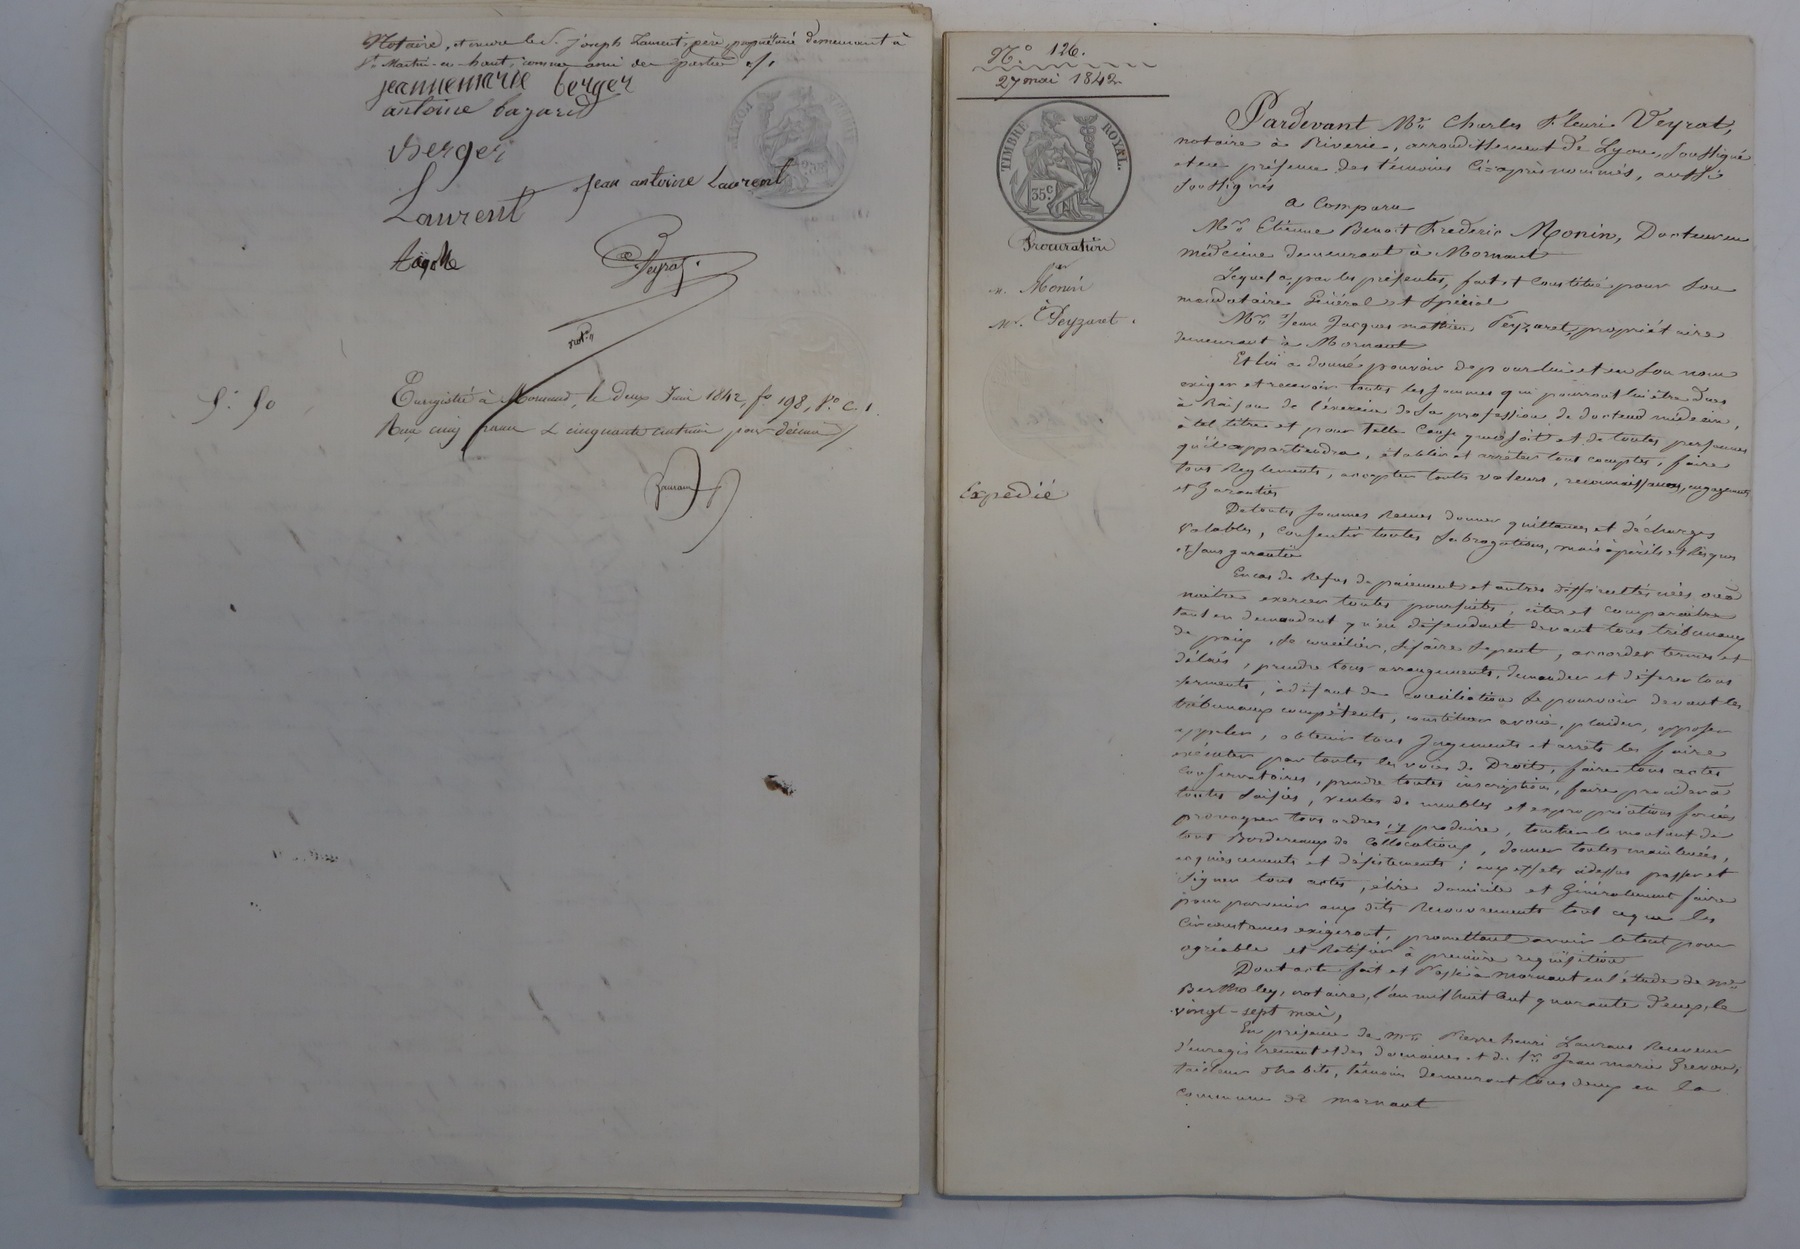 Notaire, et encore le S. Joseph Laurent, père, propriétaire demeurant à
St. Martin-en-haut, comme ami des parties ./.
jeannemarie berger
antoine bazard
Berger
Laurent
jean antoine Laurent
Veyrat
not.re
5. 50
Enregistré à Mornand, le deux Juin 1842, fo 198, Vo. c. 1.
Reçu cinq francs & cinquante centimes pour décime
TIMBRE ROYAL
No. 126.
27 mai 1842
TIMBRE ROYAL.
35 c.
Procuration
par
M. Monin
à
Mr. Peyzaret.
Expédié
Pardevant Mre. Charles Fleuri Veyrat,
notaire à Riverie, arrondissement de Lyon, soussigné
et en présence des témoins ci-après nommés, aussi
soussignés
a Comparu
Mr. Etienne Benoit Frédéric Monin, Docteur en
médecine demeurant à Mornant
Lequel a, par les présentes, fait et constitué pour son
mandataire Général et spécial
Mr. Jean Jacques mathieu Peyzaret, propriétaire
demeurant à Mornant
Et lui a donné pouvoir de pour lui et en son nom
exiger et recevoir toutes les sommes qui pourront lui être dues
à Raison de l'exercice de sa profession de docteur médecin,
à tel titre et pour telle Cause que ce soit et de toutes personnes
qu'il appartiendra, établir et arrêter tout comptes, faire
tous Reglements, accepter toutes valeurs, reconnaissances, engagements
et Garanties
De toutes sommes Recues donner quittances et décharges
Valables, consentir toutes subrogations, mais à périls et Risques
et sans garantie
En cas de Refus de paiement et autres difficultés nées ou à
naître exercer toutes poursuites, citer et comparaître
tant en demandant qu'en défendant devant tous tribunaux
de paix, se concilier, si faire se peut, accorder termes et
délais, prendre tous arrangements, demander et déferer tous
serments, à défaut de conciliation se pourvoir devant les
tribunaux compétents, constituer avoué, plaider, opposer
appeler, obtenir tous Jugements et arrêts les faire
exécuter par toutes les voies de Droit, faire tous actes
Conservatoires, prendre toutes inscription, faire procéder à
toutes saisies, ventes de meubles et expropriations forcées
provoquer tous ordres, y produire, toucher le montant de
tout Bordereaux de Collocations, donner toutes mainlevées,
acquiescements et désistements ; aux effets cidessus passer et
signer tous actes, élire domicile et Généralement faire
pour parvenir aux dits Recouvrements tout ce que les
Circonstances exigeront, promettant avoir le tout pour
agréable et Ratifier à première requisition
Dont acte fait et Passé à Mornant en l'étude de Me.
Bertholey, notaire, l'an mil huit Cent quarante Deux, le
vingt-sept mai,
En présence de Mr. Pierre henri Laurans Receveur
d'enregistrement et des domaines et du Sr. Jean marie Grevon,
tailleur d'habits, témoins demeurant tous deux en la
commune de Mornant